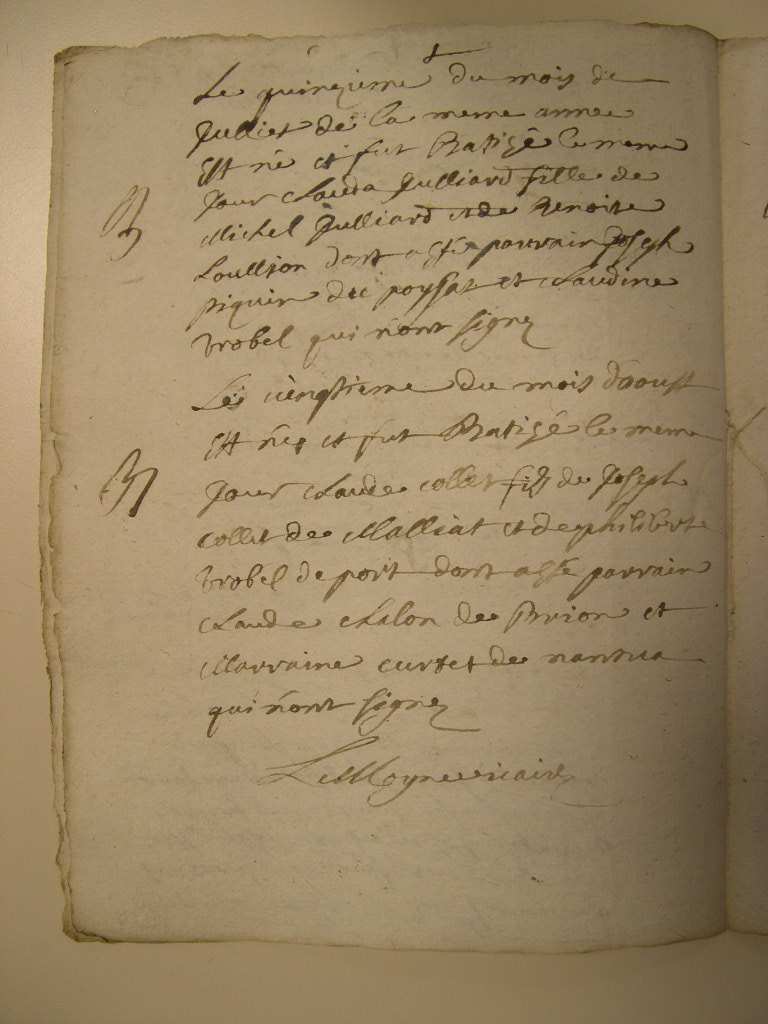 Le quinzieme du mois de
Julliet de la meme annee
Est né et fut Batisé le meme
B Jour Clauda Julliard fille de
Michel Julliard et de Benoite
Loullion dont a esté parrain Joseph
piquin du poysat et Claudine
vrobel qui n'ont signez
Le vengtieme du mois d'aoust
Est né et fut Batisé le meme
B Jour Claude collet fils de Joseph
collet de Malliat et de philiberte
vrobel de port dont a esté parrain
Claude chalon de Brion et
Marraine curtet de nantua
qui n'ont signez
LeMoyne vicaire